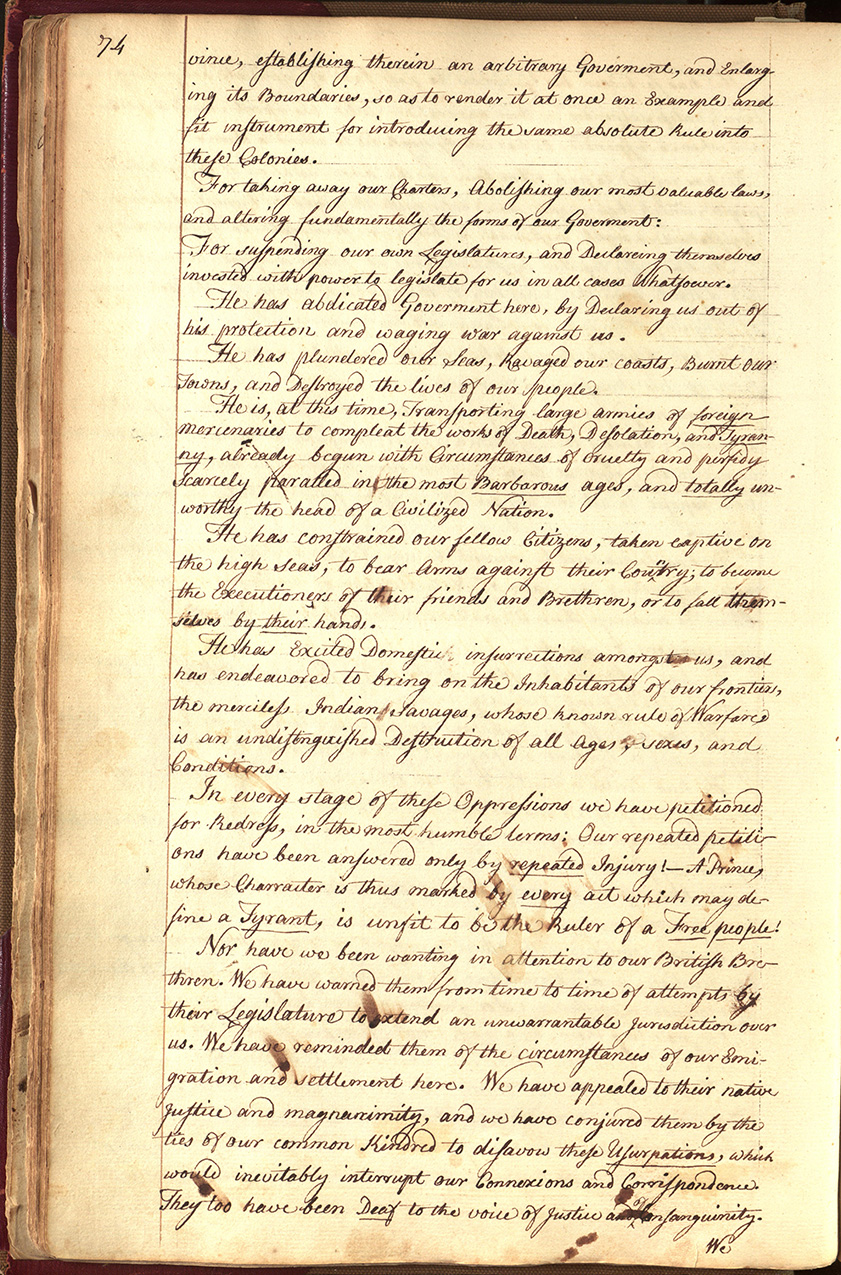 74
vince, establishing therein an arbitrary Goverment, and Enlarg-
ing its Boundaries, so as to render it at once an Example and
fit instrument for introducing the same absolute Rule into
these Colonies.
For taking away our Charters, Abolishing our most valuable laws,
and altering fundamentally the forms of our Goverment:
For suspending our own Legislatures, and Declareing themselves
invested with power to legislate for us in all cases whatsoever.
He has abdicated Goverment here, by Declaring us out of
his protection and waging war against us.
He has plundered our Seas, Ravaged our coasts, Burnt our
Towns, and Destroyed the lives of our people.
He is, at this time, Transporting large armies of foreign
mercenaries to compleat the works of Death, Desolation, and Tyran-
ny, already begun with Circumstances of cruelty and perfidy
scarcely paralled in the most Barbarous ages, and totally un-
worthy the head of a Civilized Nation.
He has constrained our fellow Citizens, taken captive on
the high Seas, to bear Arms against their Country, to become
the Executioners of their friends and Brethren, or to fall them-
selves by their hands.
He has Excited Domestic insurrections amongst us, and
has endeavored to bring on the Inhabitants of our frontiers,
the merciless Indian Savages, whose known rule of Warfare
is an undistinguished Destruction of all Ages, sexes, and
Conditions.
In every stage of these Oppressions we have petitioned
for Redress, in the most humble terms: Our repeated petiti-
ons have been answered only by repeated Injury!— A Prince,
whose Charracter is thus marked by every act which may de-
fine a Tyrant, is unfit to be the Ruler of a Free people!
Nor have we been wanting in attention to our British Bre-
thren. We have warned them from time to time of attempts by
their Legislature to extend an unwarrantable jurisdiction over
us. We have reminded them of the circumstances of our Emi-
gration and settlement here. We have appealed to their native
justice and magnanimity, and we have conjured them by the
ties of our common Kindred to disavow these Usurpations, which
would inevitably interrupt our Connexions and Correspondence.
They too have been Deaf to the voice of Justice and of Consanguinity.
We